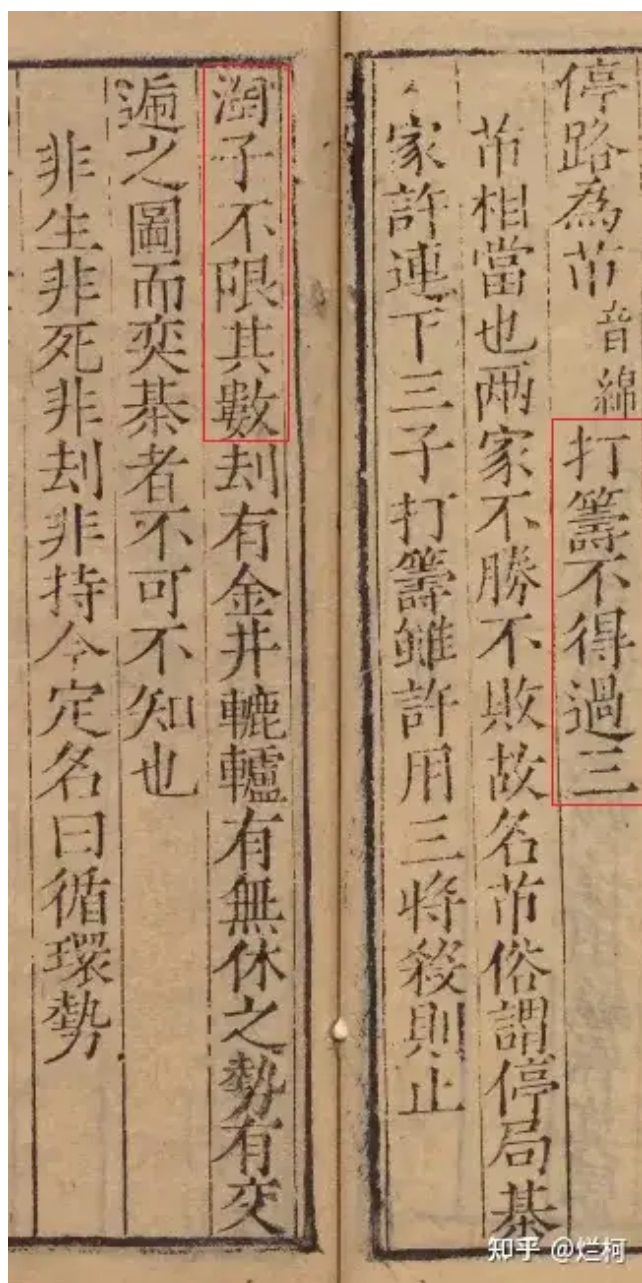 停路為芇音綿打籌不得過三
芇相當也两家不勝不敗故名芇俗謂停局棊
家許連下三子打籌雖許用三將殺則止
子不限其數刦有金井轆轤有無休之勢有交
遞之圖而奕棊者不可不知也
非生非死非刦非持今定名曰循環勢
知乎 @烂柯